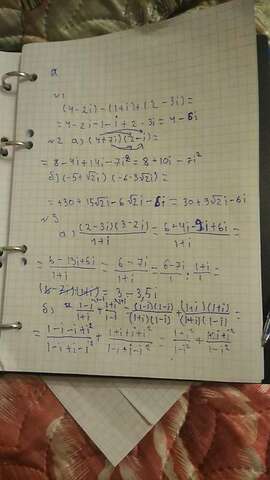 а
№1
(4-2i)-(1+i)+(2-3i)=
=4-2i-1-i+2-3i=4-6i
№2 а) (4+7i)(2-i)=
=8-4i+14i-7i²=8+10i-7i²
б) (-5+√2i)(-6-3√2i)=
=+30+15√2i-6√2i-6i=30+3√2i-6i
№3
а) (2-3i)(3-2i)/1+i = 6+4i-9i+6i/1+i =
= 6-13i+6i/1+i = 6-7i/1+i = 6-7i/1 : 1+i/1 =
= 3-3,5i
б) 1-i/1+i + 1+i/1-i = (1-i)(1-i)/(1+i)(1-i) + (1+i)(1+i)/(1+i)(1-i) =
= 1-i-i+i²/1-i+i-i² + 1+i+i+i²/1-i+i-i² =